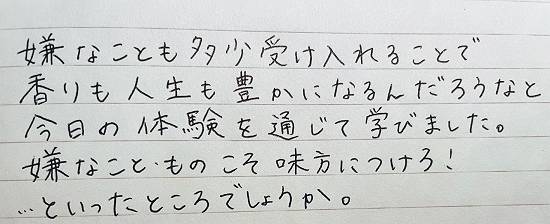 嫌なことも多少受け入れることで
香りも人生も豊かになるんだろうなと
今日の体験を通じて学びました。
嫌なこと・ものこそ味方につけろ!
…といったところでしょうか。